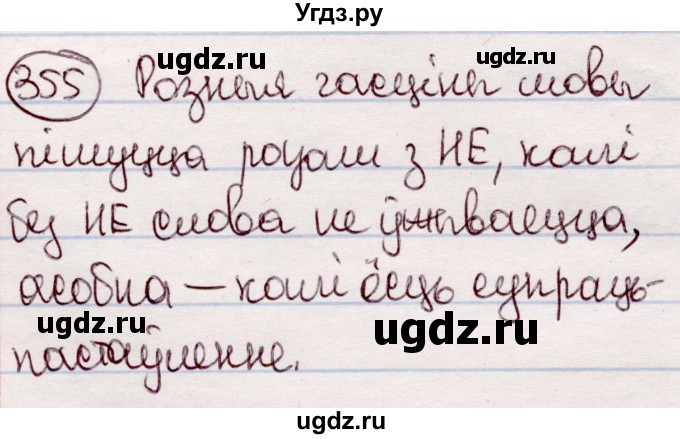 Угдз.ру
355 Розныя часціны мовы
пішуцца разам з НЕ, калі
без НЕ слова не ўжываецца,
асобна — калі ёсць супраць-
пастаўленне.
ugdz.ru
ugdz.ru
ugdz.ru
ugdz.ru
ugdz.ru